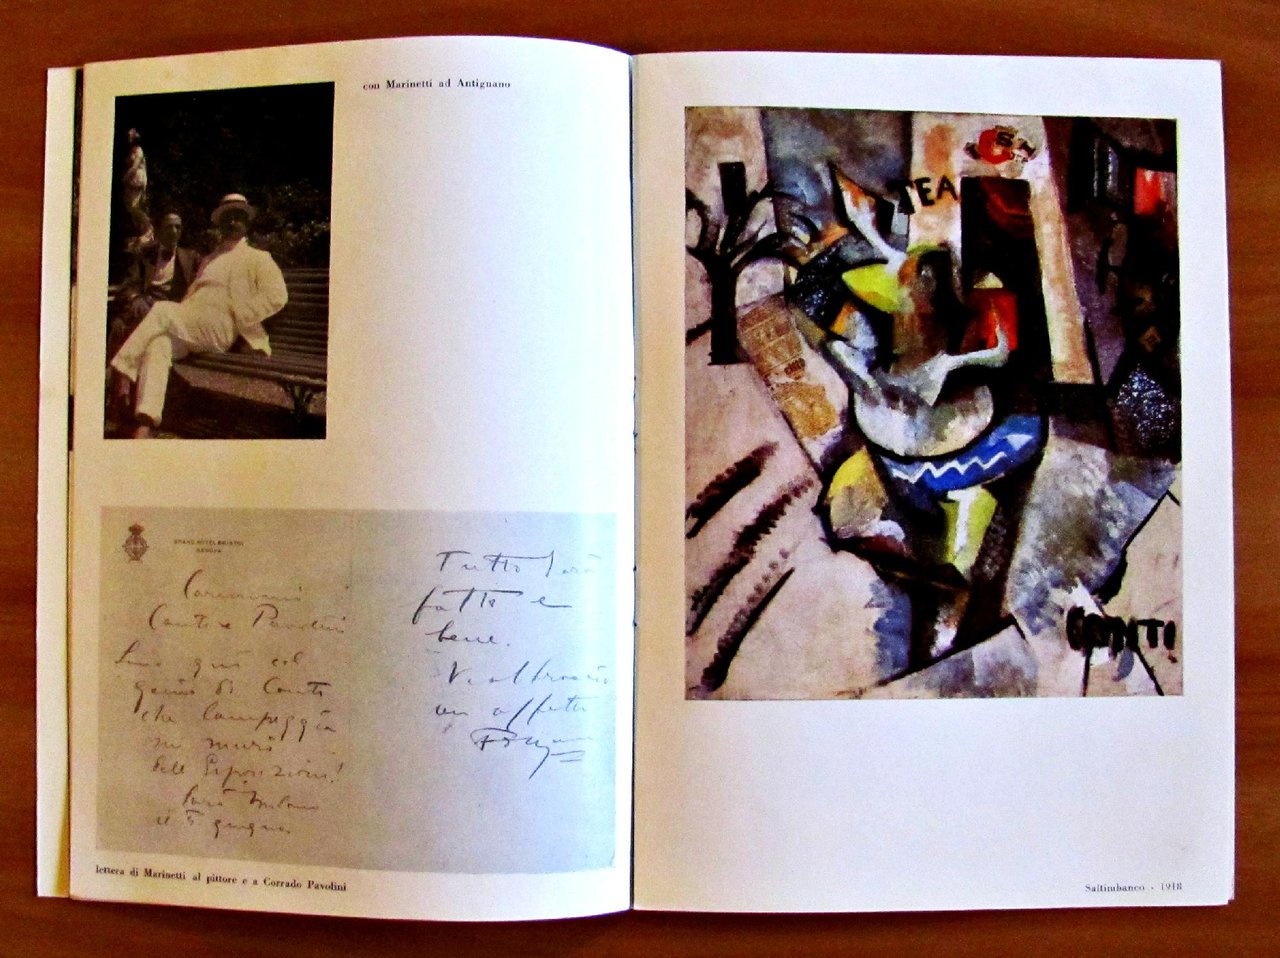 con Marinetti ad Antignano
GRAND HOTEL BRISTOL
GENOVA
Carissimi
Conti e Pavolini
Sono qui col
genio di Conti
che lampeggia
sui muri
dell'Esposizione!
Sarò Milano
il 5 giugno
Tutto sarà
fatto e
bene.
Vi abbraccio
con affetto
lettera di Marinetti al pittore e a Corrado Pavolini
TEA
CONTI
Saltimbanco - 1918